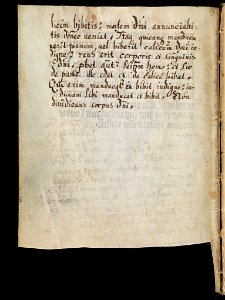 licem bibetis: mortem Dni annunciabi-
tis donec veniat. Itaq quicunq manduca
verit panem vel biberit calicem Dni in-
digne: reus erit corporis et sanguinis
Dni. probet aut seipm homo: et sic
de pane illo edat et de calice bibat.
Qui enim manducat et bibit indigne: iu-
dicium sibi manducat et bibit. Non
diiudicans corpus Dni.